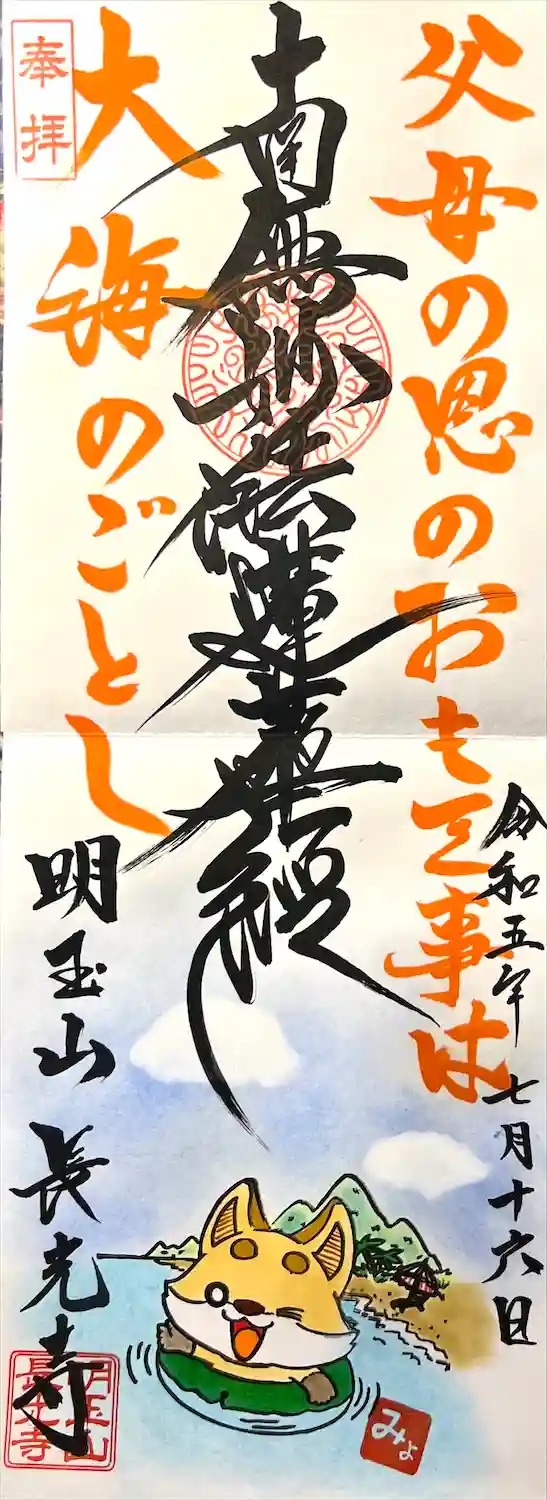 令和五年七月十六日
父母の恩のおもき事は
南無妙法蓮華經
大海のごとし
奉拝
明玉山 長光寺
明玉山
長光寺
みょ